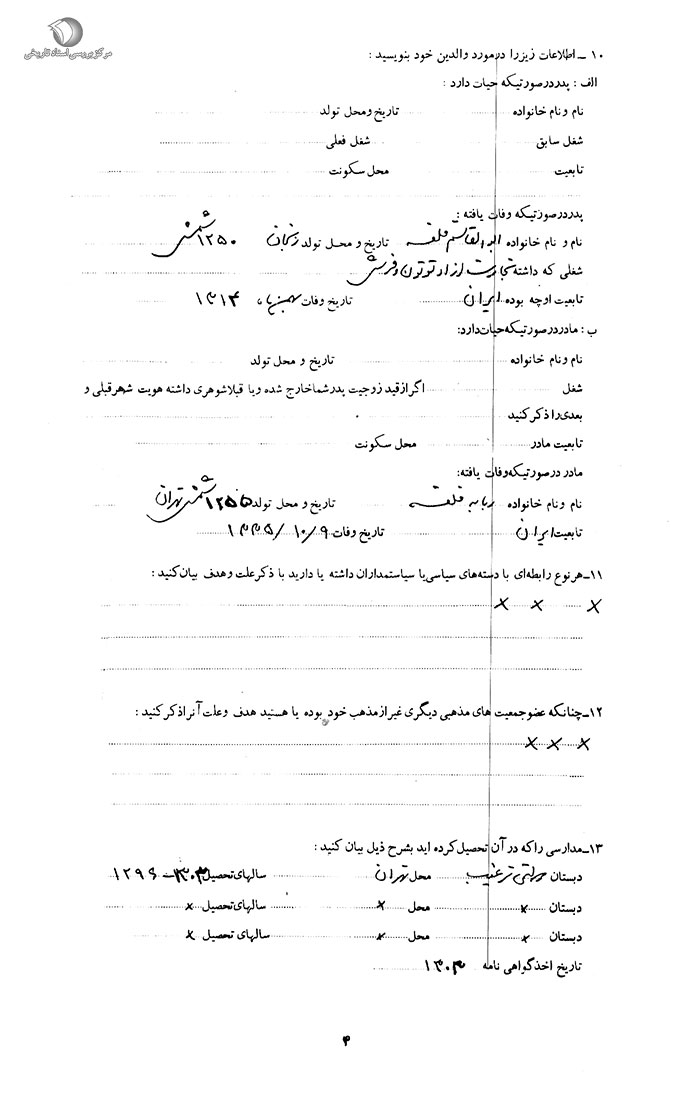 مرکز بررسی اسناد تاریخی
۱۰ ــ اطلاعات زیر را در مورد والدین خود بنویسید :
الف : پدر در صورتیکه حیات دارد :
نام و نام خانواده تاریخ و محل تولد
شغل سابق شغل فعلی
تابعیت محل سکونت
پدر در صورتیکه وفات یافته :
نام و نام خانواده ابوالقاسم تاریخ و محل تولد زنجان ۱۲۵۰ شمسی
شغلی که داشته تجارت آزاد توتون فروشی
تابعیت او چه بوده ایران تاریخ وفات بهمن ماه ۱۳۱۴
ب : مادر در صورتیکه حیات دارد:
نام و نام خانواده تاریخ و محل تولد
شغل اگر از قید زوجیت پدر شما خارج شده و یا قبلا شوهری داشته هویت شهر قبلی و
بعدی را ذکر کنید
تابعیت مادر محل سکونت
مادر در صورتیکه وفات یافته:
نام و نام خانواده ربابه تاریخ و محل تولد ۱۲۵۵ شمسی تهران
تابعیت ایران تاریخ وفات ۱۳۳۵/۱۰/۹
۱۱ــ هر نوع رابطه‌ای با دسته‌های سیاسی یا سیاستمداران داشته یا دارید با ذکر علت و هدف بیان کنید :
× × ×
۱۲ــ چنانکه عضو جمعیت های مذهبی دیگری غیر از مذهب خود بوده یا هستید هدف و علت آنرا ذکر کنید :
× × ×
۱۳ــ مدارسی را که در آن تحصیل کرده اید بشرح ذیل بیان کنید :
دبستان دولتی ترغیب محل تهران سالهای تحصیل ۱۳۰۳ – ۱۲۹۶
دبستان × محل × سالهای تحصیل ×
دبستان × محل × سالهای تحصیل ×
تاریخ اخذ گواهی نامه ۱۳۰۳
۴